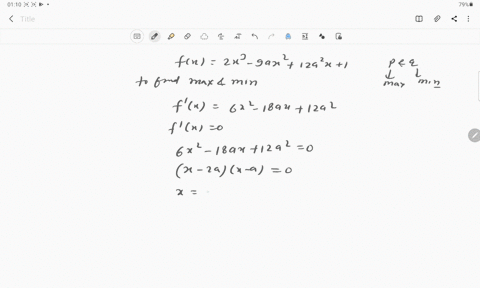 01:10
79%
Title
f(x) = 2x³ - 9ax² + 12a²x + 1
p & q
to find max & min
max min
f'(x) = 6x² - 18ax + 12a²
f'(x) = 0
6x² - 18ax + 12a² = 0
(x - 2a) (x - a) = 0
x =